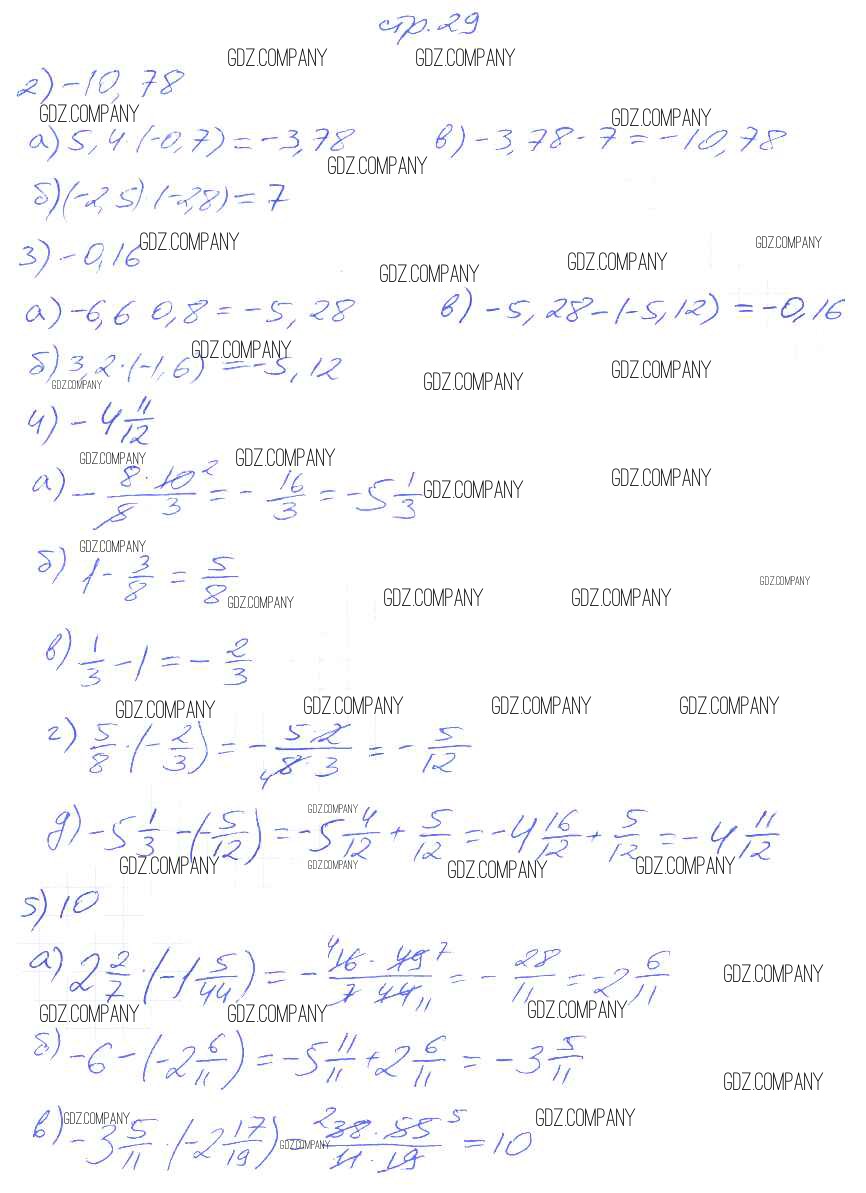 стр. 29
GDZ.COMPANY GDZ.COMPANY
2) -10,78
GDZ.COMPANY GDZ.COMPANY
а) 5,4·(-0,7) = -3,78 в) -3,78 - 7 = -10,78
GDZ.COMPANY
б) (-2,5)·(-2,8) = 7
3) -0,16 GDZ.COMPANY GDZ.COMPANY
GDZ.COMPANY GDZ.COMPANY
а) -6,6 0,8 = -5,28 в) -5,28 - (-5,12) = -0,16
GDZ.COMPANY
б) 3,2·(-1,6) = -5,12 GDZ.COMPANY
GDZ.COMPANY GDZ.COMPANY
4) -4 11/12
GDZ.COMPANY GDZ.COMPANY
а) - 8·10 2/8 3 = - 16/3 = -5 1/3 GDZ.COMPANY GDZ.COMPANY
GDZ.COMPANY
б) 1 - 3/8 = 5/8
GDZ.COMPANY GDZ.COMPANY GDZ.COMPANY GDZ.COMPANY
в) 1/3 - 1 = - 2/3
GDZ.COMPANY GDZ.COMPANY GDZ.COMPANY GDZ.COMPANY
г) 5/8·(- 2/3) = - 5·2/4 8·3 = - 5/12
GDZ.COMPANY
д) -5 1/3 - (- 5/12) = -5 4/12 + 5/12 = -4 16/12 + 5/12 = -4 11/12
GDZ.COMPANY GDZ.COMPANY GDZ.COMPANY GDZ.COMPANY
5) 10
а) 2 2/7·(-1 5/44) = - 4 16·49 7/7 44 11 = - 28/11 = -2 6/11 GDZ.COMPANY
GDZ.COMPANY GDZ.COMPANY GDZ.COMPANY
б) -6 - (-2 6/11) = -5 11/11 + 2 6/11 = -3 5/11
GDZ.COMPANY
GDZ.COMPANY GDZ.COMPANY
в) -3 5/11·(-2 17/19) = 2 38·55 5/11·19 = 10
GDZ.COMPANY